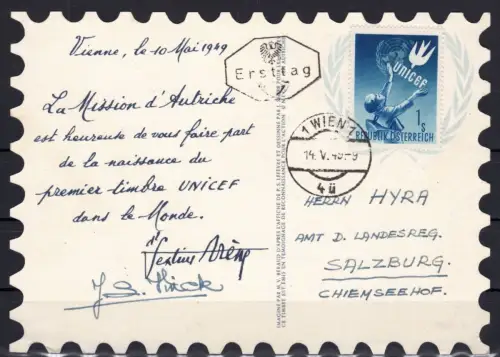 Vienne, le 10 Mai 1949
La Mission d'Autriche
est heureuse de vous faire part
de la naissance du
premier timbre UNICEF
dans le Monde.
Ersttag
UNICEF
1S
REPUBLIK ÖSTERREICH
1 WIEN
14. V. 49-9
4ü
HERRN HYRA
AMT D. LANDESREG.
SALZBURG.
CHIEMSEEHOF.